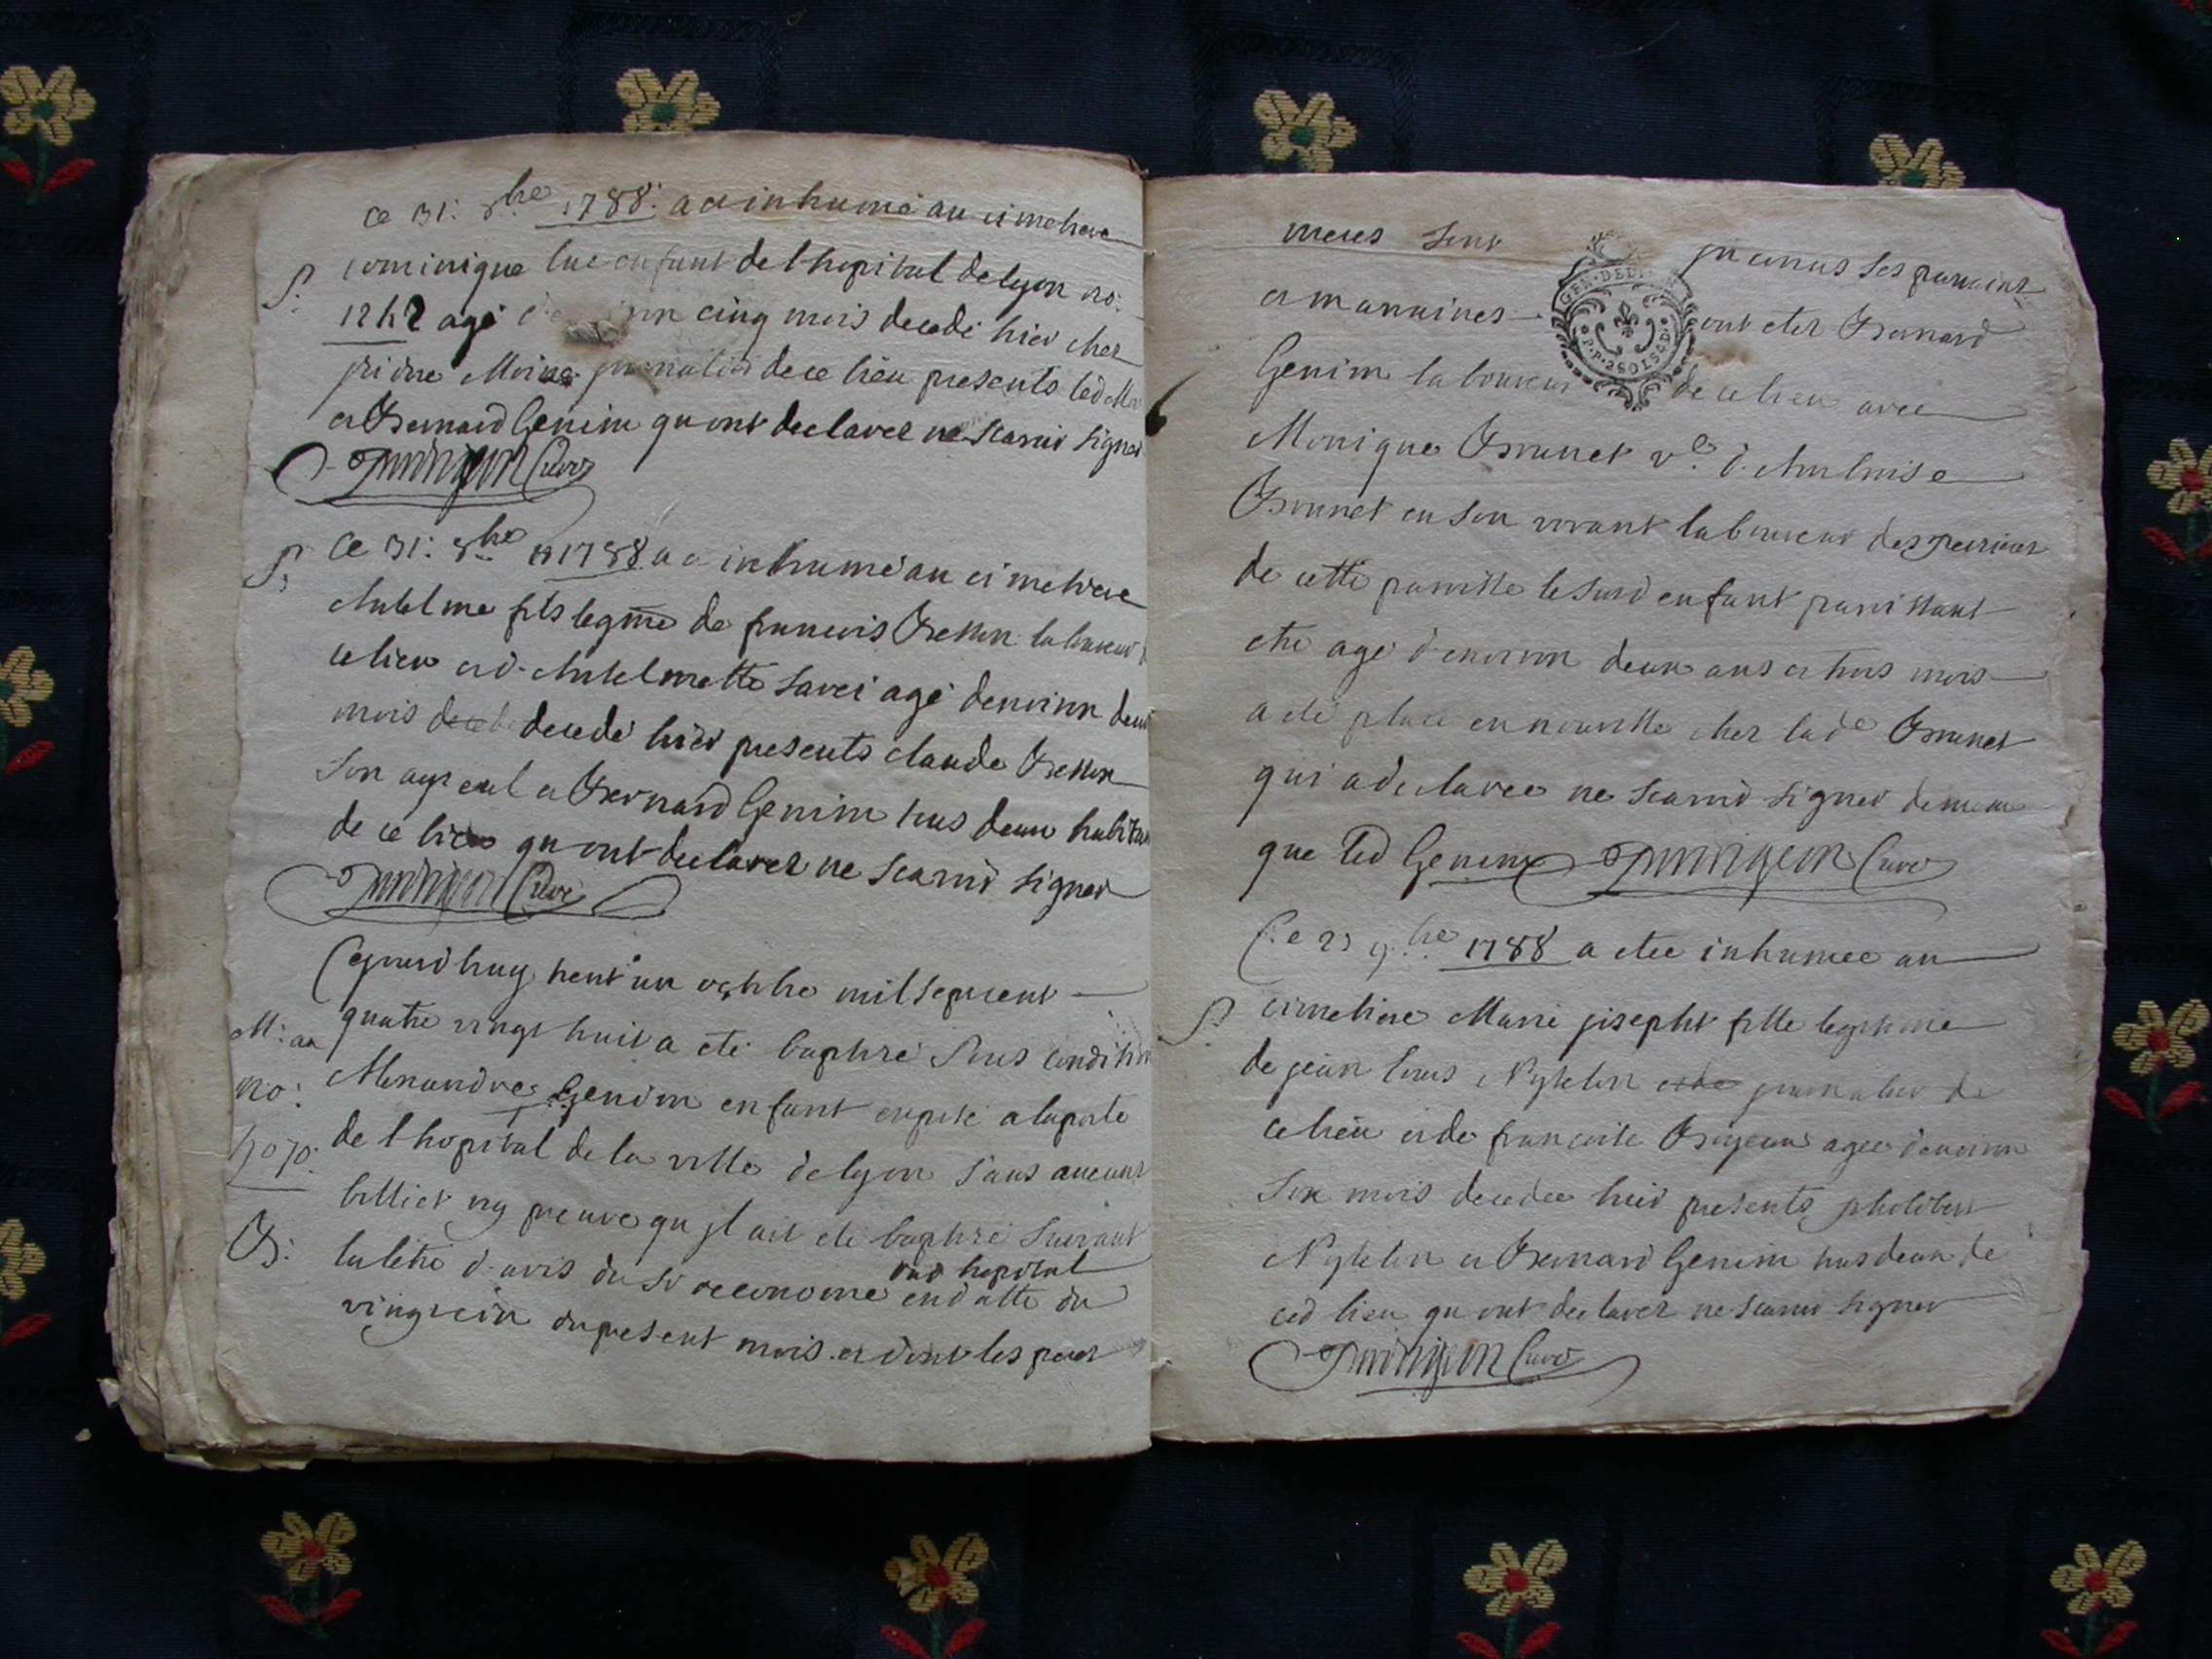 ce 31: 8bre 1788: a ée inhumé au cimetiere
S: dominique luc enfant de l'hopital de lyon no:
1242 agé d'environ cinq mois decedé hier chez
pierre Moine journalier de ce lieu presents led Moi
et Bernard Genim qu ont declarer ne scavoir signer
Curé
S: Ce 31: 8bre 1788 a é inhumé au cimetiere
Antelme fils legme de francois Besson laboureur d
ce lieu et d'Antelmette Savei agé denviron deux
mois decedé hier presents claude Besson
son ayeul et Bernard Genim tous deux habitan
de ce lieu qu ont declarer ne scavoir signer
Curé
Cejourdhuy trent'un octobre mil sept cent
quatre vingt huit a eté baptisé sous condition
M: aa
Alexandre Genim enfant exposé a la porte
no:
de l'hopital de la ville de lyon sans aucune
billiet ny preuve qu jl ait eté baptisé suivant
B: la letre d'avis du Sr oeconome dud hopital en datte du
vingt cin du present mois et dont les peres
meres sont jnconnus ses parrains
GEN. DE DI
2 SOLS 4 D
et marraines ont eter Bernard
Genim laboureur de ce lieu avec
Monique Brunet ve. d'Ambroise
Brunet en son vivant laboureur des perrieres
de cette paroisse le surd enfant paroissant
etre agé d'environ deux ans et trois mois
a eté placé en nourisse chez lade Brunet
qui a declaree ne scavoir signer de meme
que led Genim Curé
Ce 23 9bre 1788 a etee inhumee au
S: cimetiere Marie josepht fille legitime
de jean louis journalier de
ce lieu et de francoise agee d'environ
six mois decedee hier presents philibert
et Bernard Genim tous deux de
ced lieu qu ont declarer ne scavoir signer
Curé